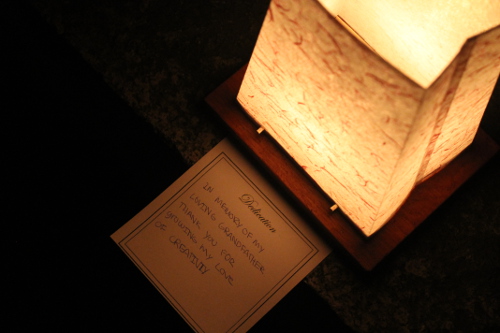 Dedication
IN MEMORY OF MY
LOVING GRANDFATHER
THANK YOU FOR
SPARKING MY LOVE
OF CREATIVITY